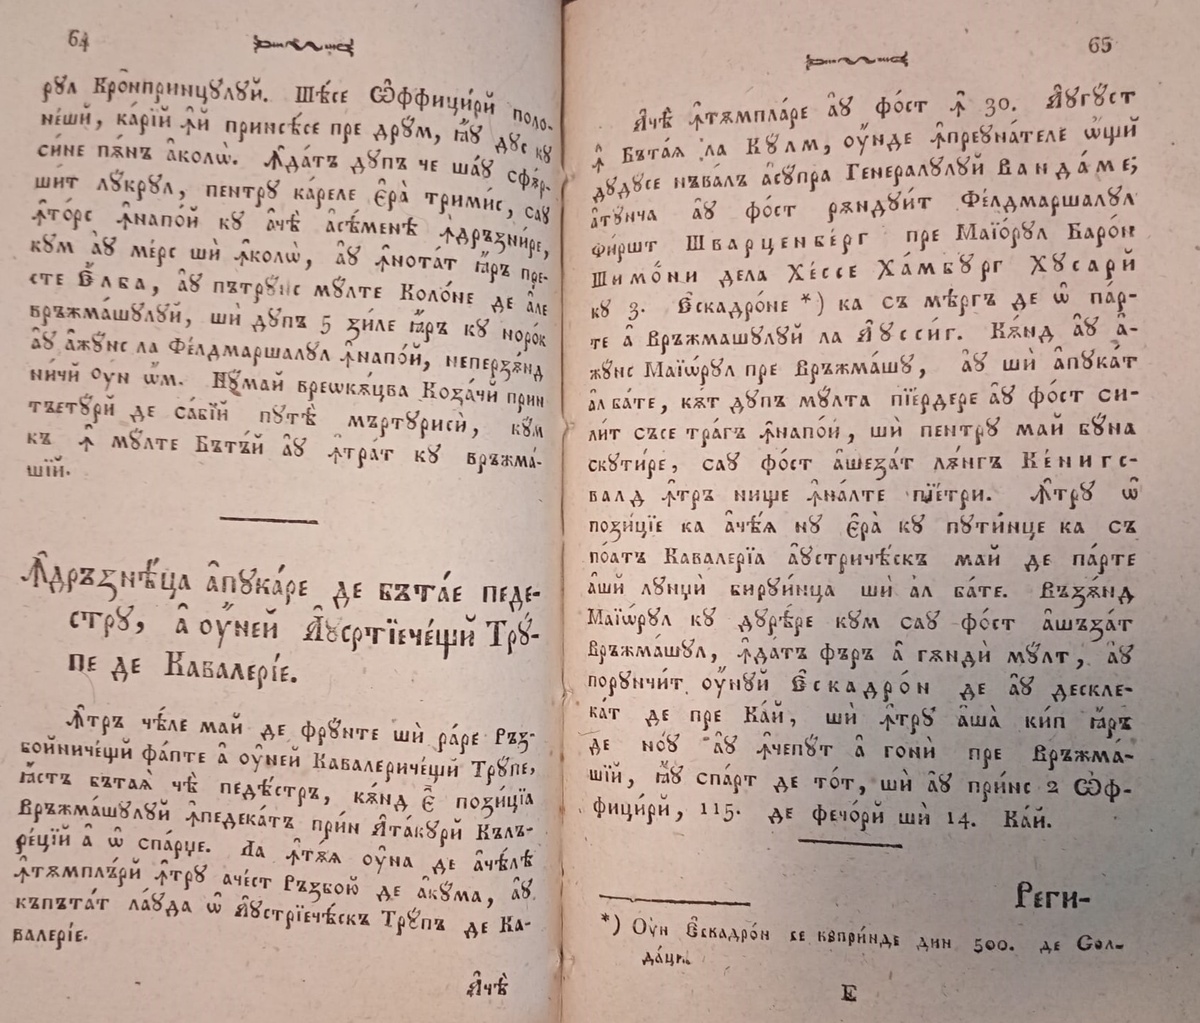 64
рꙋл Кро̑нпринцꙋлꙋй. Шѣ́се Ѡ̑ффици́рй поло-
не́щй, ка́рїй ꙟ̑й принсѣ́се пре дрꙋм, ꙗ҆ꙋ дꙋс кꙋ
си́не пѫнъ а̑колѡ̀. Ꙟ̑да́тъ дꙋпъ че шаꙋ сфѫр-
шит лꙋ́крꙋл, пентрꙋ ка́реле є̑ра̀ трими́с, саꙋ
ꙟ̑то́рс ꙟ̑напо́й кꙋ а̑чѣ̀ а̑се́менѣ ꙟ̑дръзни́ре,
кꙋм а̑ꙋ ме́рс шѝ ꙟ̑колѡ̀, а̑ꙋ ꙟ̑нота́т ꙗ҆ръ пре-
сте Є҆́лба, а̑ꙋ пътрꙋнс мꙋлте Коло́не де а̑ле
връжма́шꙋлꙋй, шѝ дꙋпъ 5 зи́ле ꙗ҆ръ кꙋ норо́к
а̑ꙋ а̑жꙋнс ла Фе́лдмаршалꙋл ꙟ̑напо́й, неперзѫ́нд
ничй оу҆н ѡ҆м. Нꙋмай вреѡкѫцва Коза́чй прин
тъетꙋ́рй де са́бїй пꙋтѣ̀ мъртꙋрисѝ, кꙋм
къ ꙟ̑ мꙋлте Бъта́й а̑ꙋ ꙟ̑тра́т кꙋ връжма́-
шїй.
Ꙟ̑дръзнѣ́ца а̑пꙋка́ре де бъта́е педе-
стрꙋ, а̑ оу҆ней А҆ꙋсртїече́щй Трꙋ́-
пе де Кавалері́е.
Ꙟ̑тръ чѣ́ле май де фрꙋ́нте шѝ ра́ре Ръз-
войниче́щй фа́пте а̑ оу҆ней Кавалериче́щй Трꙋпе,
ꙗ҆стъ бътаѧ̀ чѣ педѣ́стръ, кѫнд є̑ пози́ціа
Връжма́шꙋлꙋй ꙟ̑педека́тъ при́н А̑та́кꙋрй Кълъ-
ре́цїй а̑ ѡ̑ спа́рџе. Ла ꙟ̑тѫѧ оу҆на де а̑чѣ́лѣ
ꙟ̑тѫмплъ́рй ꙟ̑трꙋ аче́ст Ръзвою̀ де а̑кꙋма, а̑ꙋ
къпъта́т ла́ꙋда ѡ̑ А҆ꙋстрїече́скъ Трꙋпъ де Ка-
валері́е.
А̑чѣ̀
65
А̑чѣ̀ ꙟ̑тѫмпла́ре а̑ꙋ фо́ст ꙟ̑ 30. А҆́ꙋгꙋст
ꙟ̑ Бъта́ѧ ла Кꙋлм, оу҆нде ꙟ̑преꙋна́теле ѡ҆щй
дꙋдꙋсе нъва́лъ а̑сꙋпра Генералꙋлꙋй Ванда́ме;
а̑тꙋнча а̑ꙋ фо́ст рѫндꙋи́т Фе́лдмаршалꙋл
фи́ршт Шварценбе́рг пре Маїо́рꙋл Баро́н
Шимо́ни дела Хе́ссе Ха́мбꙋрг Хꙋсарй
кꙋ 3. Є҆скадро́не *) ка съ мѣргъ де ѡ̑ па́р-
те а̑ Връжмашꙋлꙋй ла А҆ꙋсси́г. Кѫнд а̑ꙋ а̑-
жꙋнс Маїѡ́рꙋл пре Връжма́шꙋ, а̑ꙋ шѝ а̑пꙋка́т
а̑л ва́те, кѫт дꙋпъ мꙋлта пїе́рдере а̑ꙋ фо́ст си-
ли́т съсе тра́гъ ꙟ̑напо́й, шѝ пентрꙋ май бꙋна
скꙋти́ре, саꙋ фо́ст а̑шеза́т лѫнгъ Ке́нигс-
валд ꙟ̑тръ нище ꙟ̑на́лте пїе́три. Ꙟ̑трꙋ ѡ̑
пози́ціе ка а̑чѣ́ѧ нꙋ є̑ра̀ кꙋ пꙋти́нце ка съ
по́атъ Кавалерїа а̑ꙋстриче́скъ май де па́рте
а̑шй лꙋнџѝ вирꙋи́нца шѝ а̑л ва́те. Въза́нд
Маїѡ́рꙋл кꙋ дꙋрѣ́ре кꙋм саꙋ фо́ст а̑шъза́т
Връжма́шꙋл, ꙟ̑датъ фъръ а̑ гѫндѝ мꙋлт, а̑ꙋ
порꙋнчи́т оу҆нꙋй Є҆скадро́н де а̑ꙋ дескле-
кат де пре Ка́й, шѝ ꙟ̑трꙋ а̑ша̀ ки́п ꙗ҆ръ
де но́ꙋ а̑ꙋ ꙟ̑чепꙋ́т а̑ гонѝ пре връжма-
шїй, ꙗ҆ꙋ спа́рт де то́т, шѝ а̑ꙋ при́нс 2 Ѡ̑ф-
фици́рй, 115. де фечо́рй шѝ 14. Ка́й.
Реги-
*) Оу҆н Є҆скадро́н се кꙋпри́нде дин 500. де Сол-
да́ци.
Е